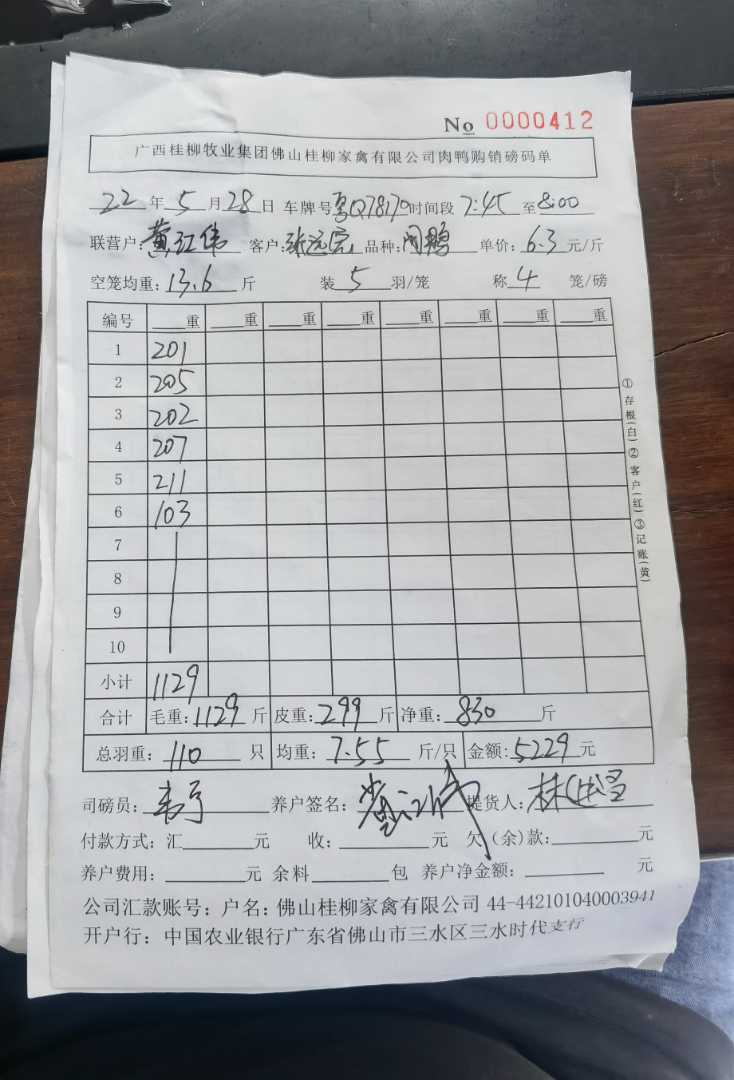 No 0000412
广西桂柳牧业集团佛山桂柳家禽有限公司肉鸭购销磅码单
22年5月28日 车牌号粤Q78170时间段7:45至8:00
联营户:黄江伟 客户:张远宏 品种:肉鸭 单价:6.3元/斤
空笼均重:13.6斤 装5羽/笼 称4笼/磅
编号 重 重 重 重 重 重 重 重
1 201
2 205
3 202
4 207
5 211
6 103
7
8
9
10
小计 1129
合计 毛重:1129斤 皮重:299斤 净重:830斤
总羽重:110只 均重:7.55斤/只 金额:5229元
司磅员: 养户签名: 提货人:
付款方式:汇 元 收: 元 欠(余)款: 元
养户费用: 元 余料 包 养户净金额: 元
公司汇款账号:户名:佛山桂柳家禽有限公司 44-442101040003941
开户行:中国农业银行广东省佛山市三水区三水时代支行
①存根(白)②客户(红)③记账(黄)